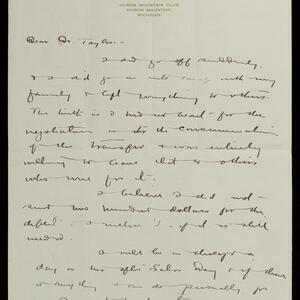 HURON MOUNTAIN CLUB
HURON MOUNTAIN
MICHIGAN
Dear Dr. Taylor:-
I did go off suddenly,
& I did go on with my
family & left everything to others.
The truth is I had no heart for the
negotiations or for the consummation
of the transfer & was entirely
willing to leave that to others
who were for it.
I believe I did not
send two hundred dollars for the
deficit. I enclose it, if it is still
needed.
I will be in
day or two after Labor Day & if there
is anything I can do personally for